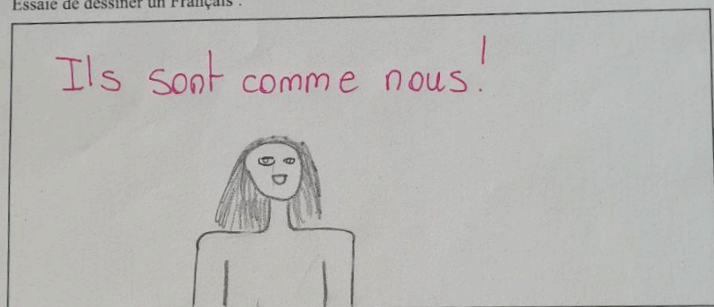 Essaie de dessiner un Français :
Ils sont comme nous!